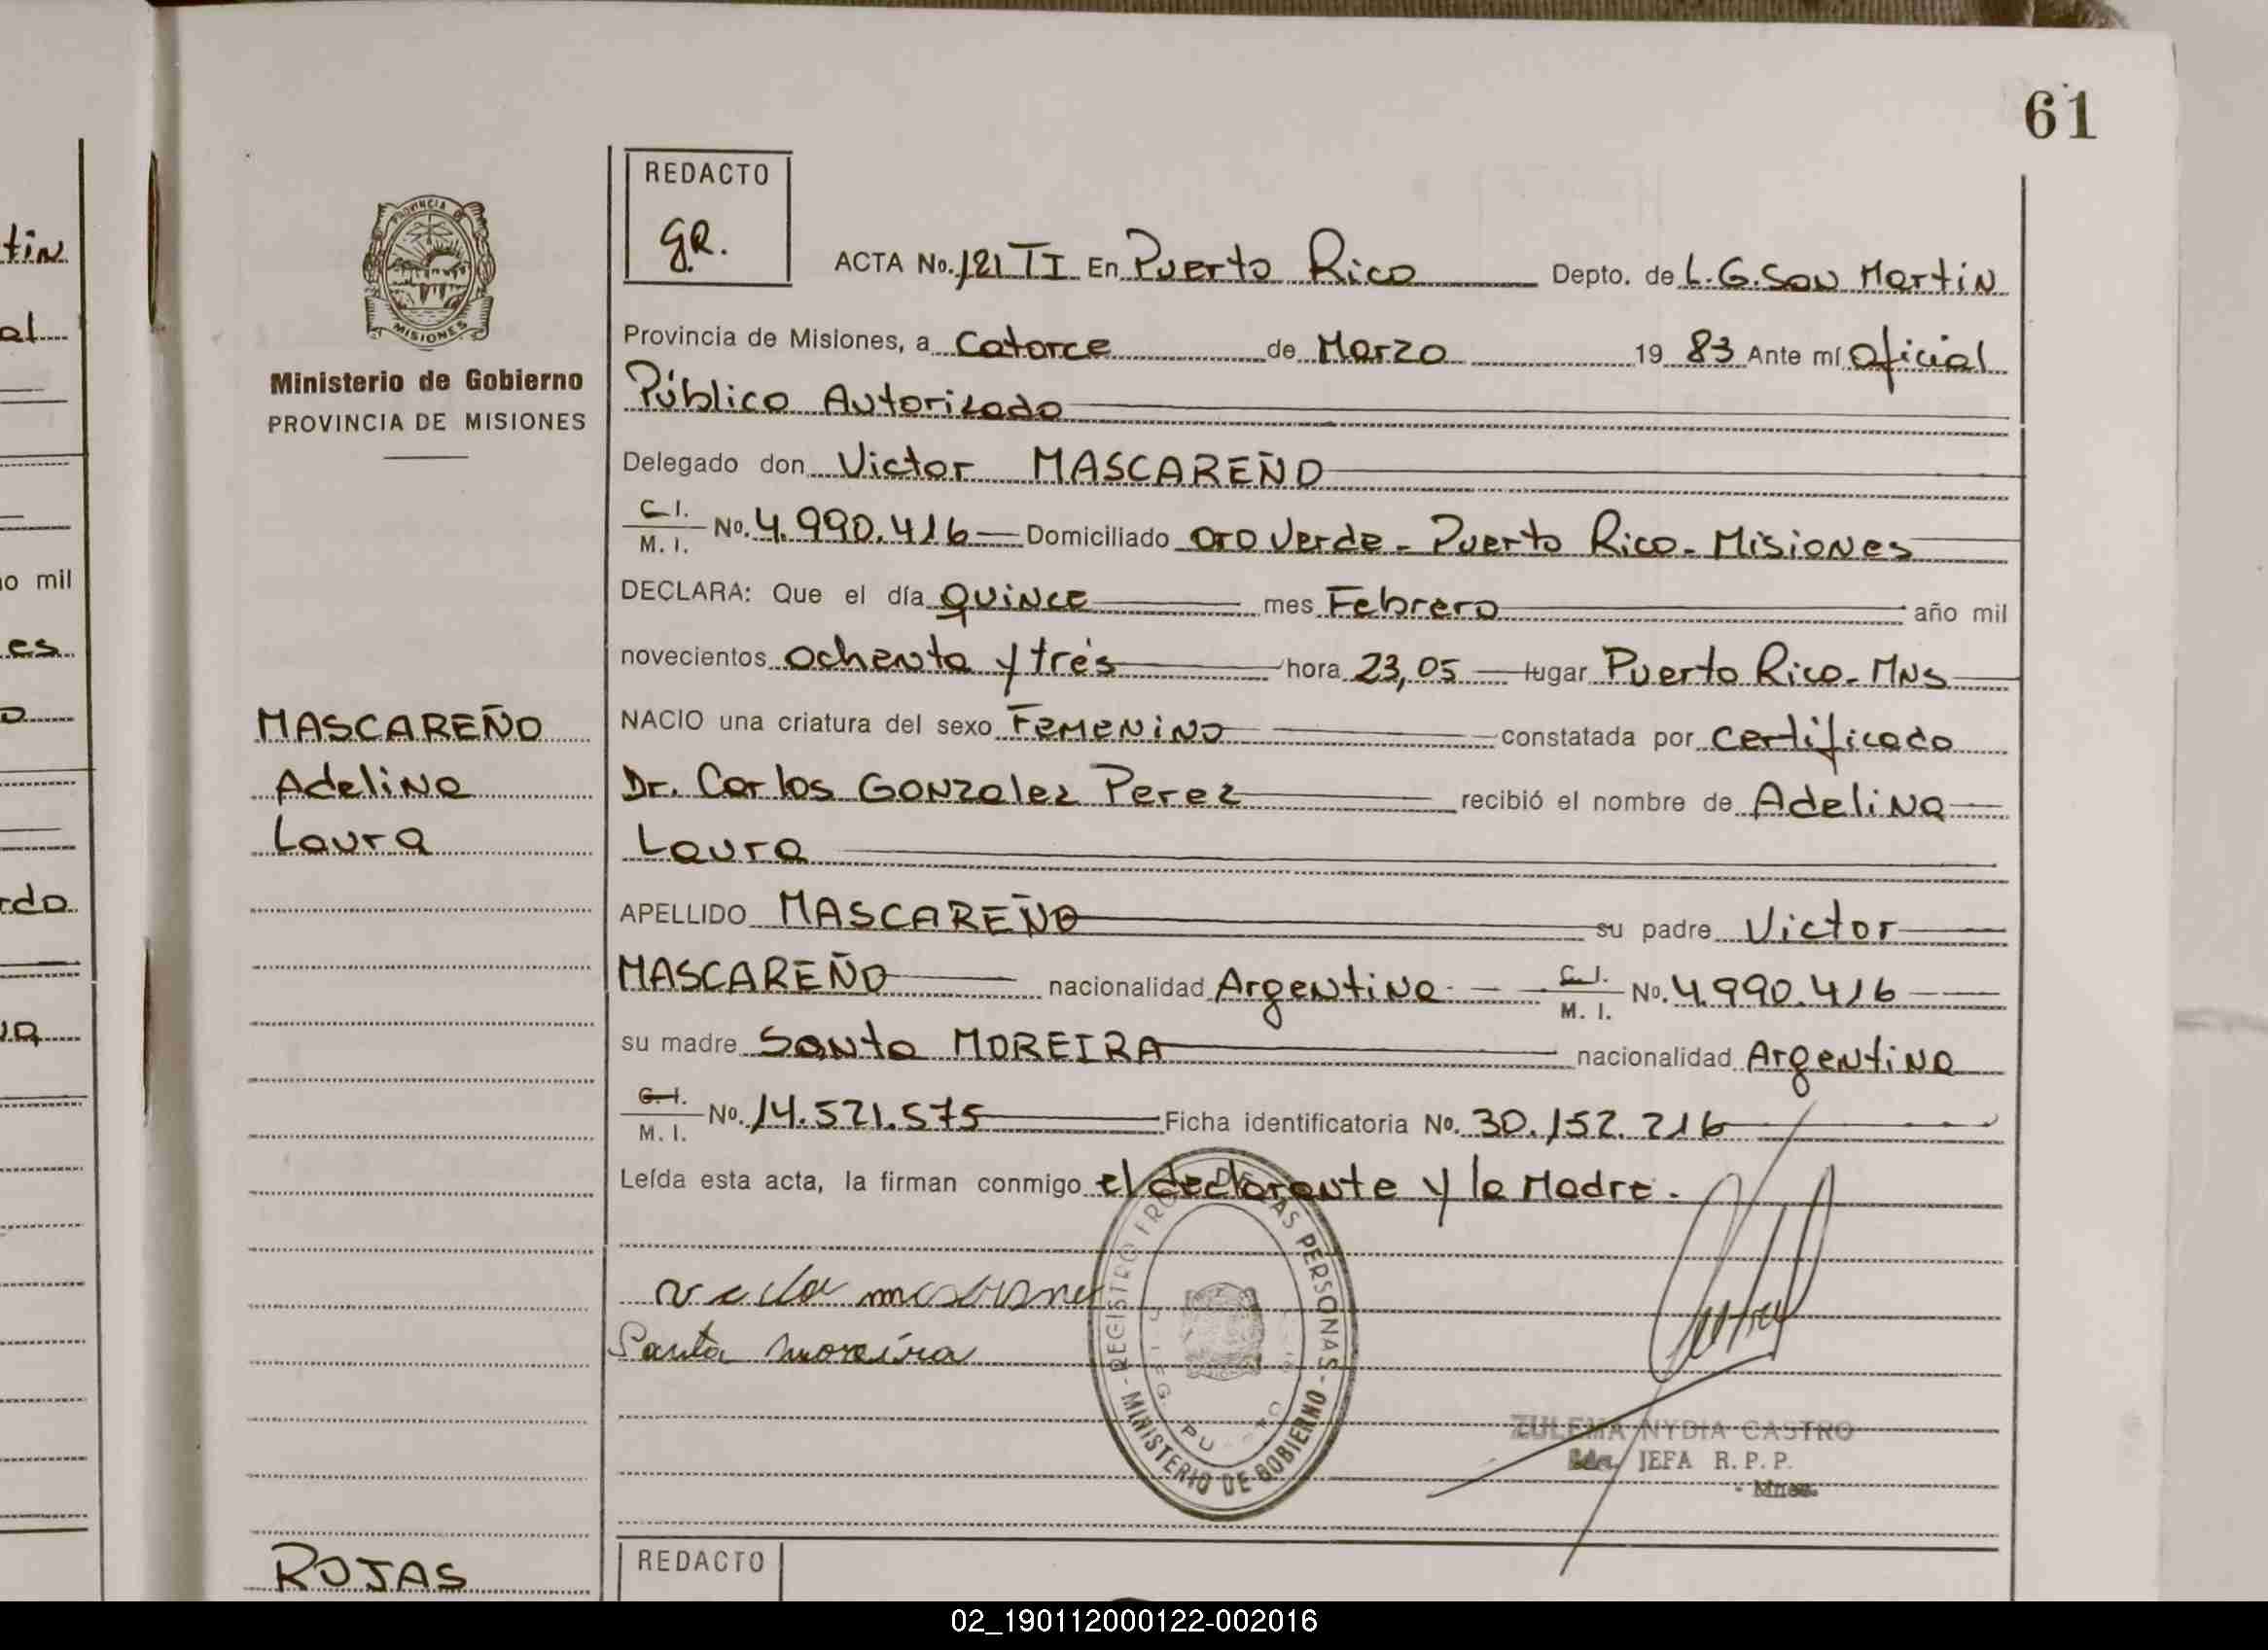 61
tin
al
o mil
es
o
rdo
REDACTO
gR.
PROVINCIA DE
MISIONES
Ministerio de Gobierno
PROVINCIA DE MISIONES
MASCAREÑO
Adelina
Laura
ROJAS
ACTA No. 121 TI En Puerto Rico Depto. de L.G. San Martin
Provincia de Misiones, a Catorce de Marzo 19 83 Ante mí Oficial
Público Autorizado
Delegado don Victor MASCAREÑO
C.I. M.I. No. 4.990.416 Domiciliado Oro Verde - Puerto Rico - Misiones
DECLARA: Que el día QUINCE mes Febrero año mil
novecientos ochenta y trés hora 23,05 lugar Puerto Rico - MNS
NACIO una criatura del sexo Femenino constatada por certificado
Dr. Carlos Gonzalez Perez recibió el nombre de Adelina
Laura
APELLIDO MASCAREÑO su padre Victor
MASCAREÑO nacionalidad Argentina C.I. M.I. No. 4.990.416
su madre Santa MOREIRA nacionalidad Argentina
C.I. M.I. No. 14.521.575 Ficha identificatoria No. 30.152.216
Leída esta acta, la firman conmigo el declarante y la Madre.
Santa moreira
DE LAS PERSONAS
- REGISTRO
- MINISTERIO DE GOBIERNO -
ZULEMA NYDIA CASTRO
JEFA R.P.P.
REDACTO
02_190112000122-002016